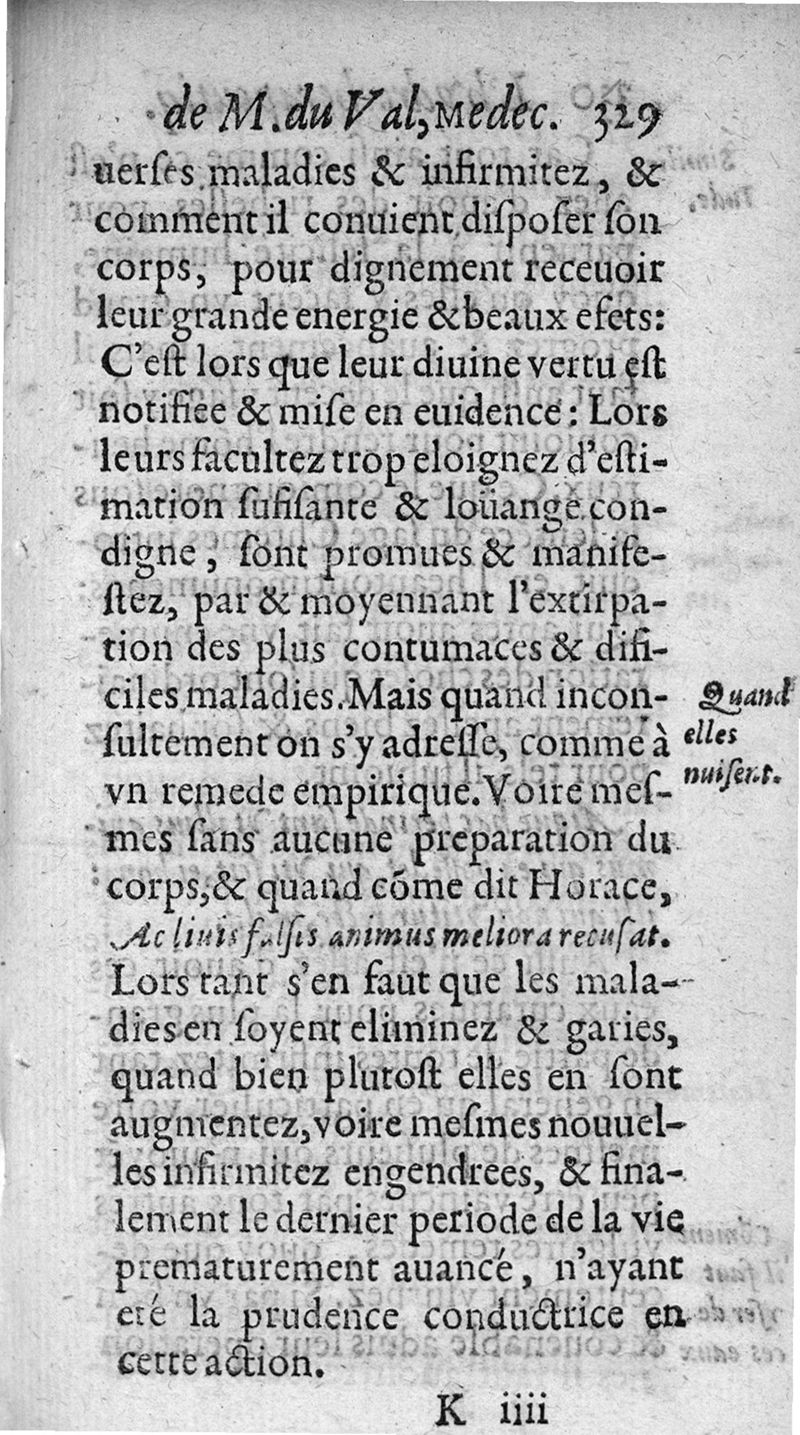 de M. du Val, Medec. 329
uerſes maladies & infirmitez, &
comment il conuient diſpoſer ſon
corps, pour dignement receuoir
leur grande energie & beaux efets:
C'eſt lors que leur diuine vertu eſt
notifiee & miſe en euidence: Lors
leurs facultez trop eloignez d'eſti-
mation ſufiſante & loüange con-
digne, ſont promues & manife-
ſtez, par & moyennant l'extirpa-
tion des plus contumaces & difi-
ciles maladies. Mais quand incon-
ſultement on s'y adreſſe, comme à
vn remede empirique. Voire meſ-
mes ſans aucune preparation du
corps, & quand cõme dit Horace,
Ac liuis falſis animus meliora recuſat.
Lors tant s'en faut que les mala-
dies en ſoyent eliminez & garies,
quand bien plutoſt elles en ſont
augmentez, voire meſmes nouuel-
les infirmitez engendrees, & fina-
lement le dernier periode de la vie
prematurement auancé, n'ayant
eté la prudence conductrice en
cette action.
Quand
elles
nuiſent.
K iiii